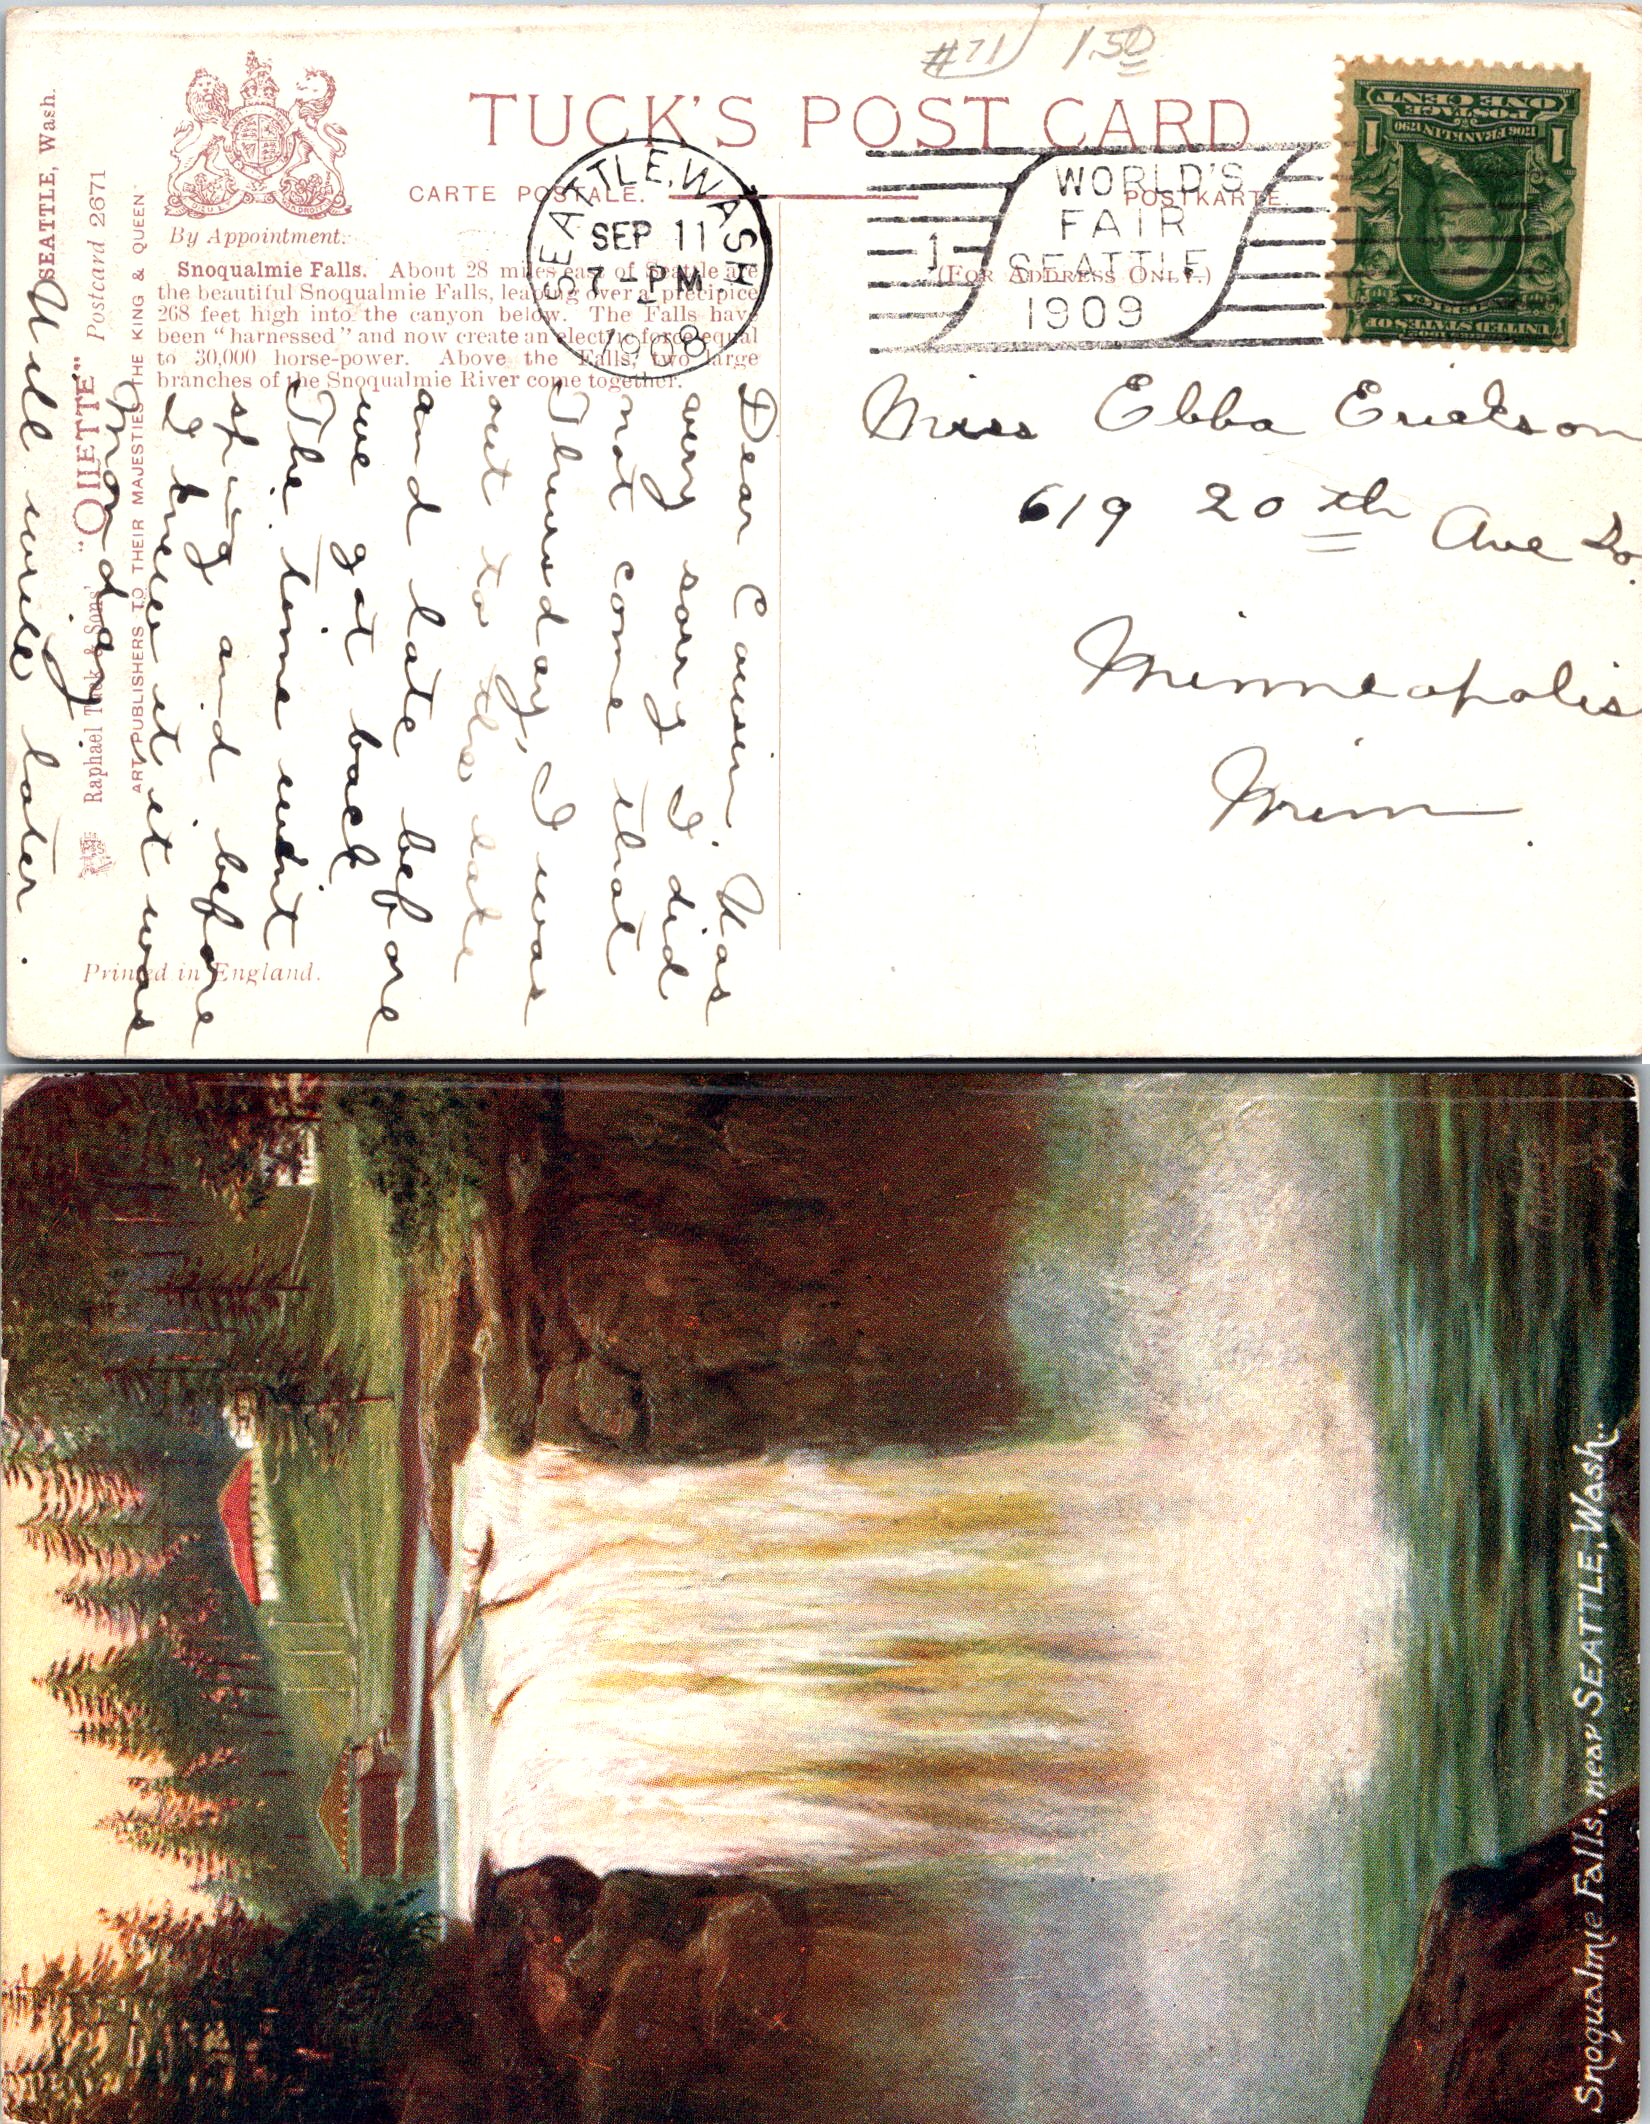 #71 1 50
TUCK'S POST CARD
CARTE POSTALE.
POSTKARTE.
(FOR ADDRESS ONLY.)
By Appointment.
SEATTLE, WASH.
SEP 11
7-PM
1908
1
WORLD'S
FAIR
SEATTLE
1909
UNITED STATES OF
AMERICA
1706 FRANKLIN 1790
POSTAGE
ONE CENT
1 1
Snoqualmie Falls. About 28 miles east of Seattle are
the beautiful Snoqualmie Falls, leaping over a precipice
268 feet high into the canyon below. The Falls have
been "harnessed" and now create an electric force equal
to 30,000 horse-power. Above the Falls, two large
branches of the Snoqualmie River come together.
SEATTLE, Wash.
Raphael Tuck & Sons' "OILETTE" Postcard 2671
ART PUBLISHERS TO THEIR MAJESTIES THE KING & QUEEN
Printed in England.
Dear Cousin. Was
very sorry I did
not come that
Thursday, I was
out to the lake
and late before
we got back
The time went
and before
I knew it it was
Monday
Will write later.
Miss Ebba Erickson
619 20th Ave So.
Minneapolis
Minn.
Snoqualmie Falls, near SEATTLE, Wash.